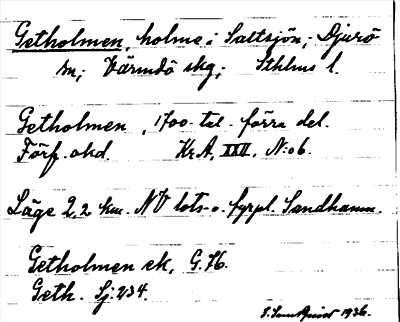 Getholmen, holme i Saltsjön, Djurö
sn, Värmdö skg, Sthlms l.
Getholmen, 1700-tal. förra del.
Förf. okd. Kr.A, XXII, N:o 6.
Läge 2,2 km. NV lots- o. fyrpl. Sandhamn.
Getholmen ek, G.76.
Geth. Sj: 234.
1936.